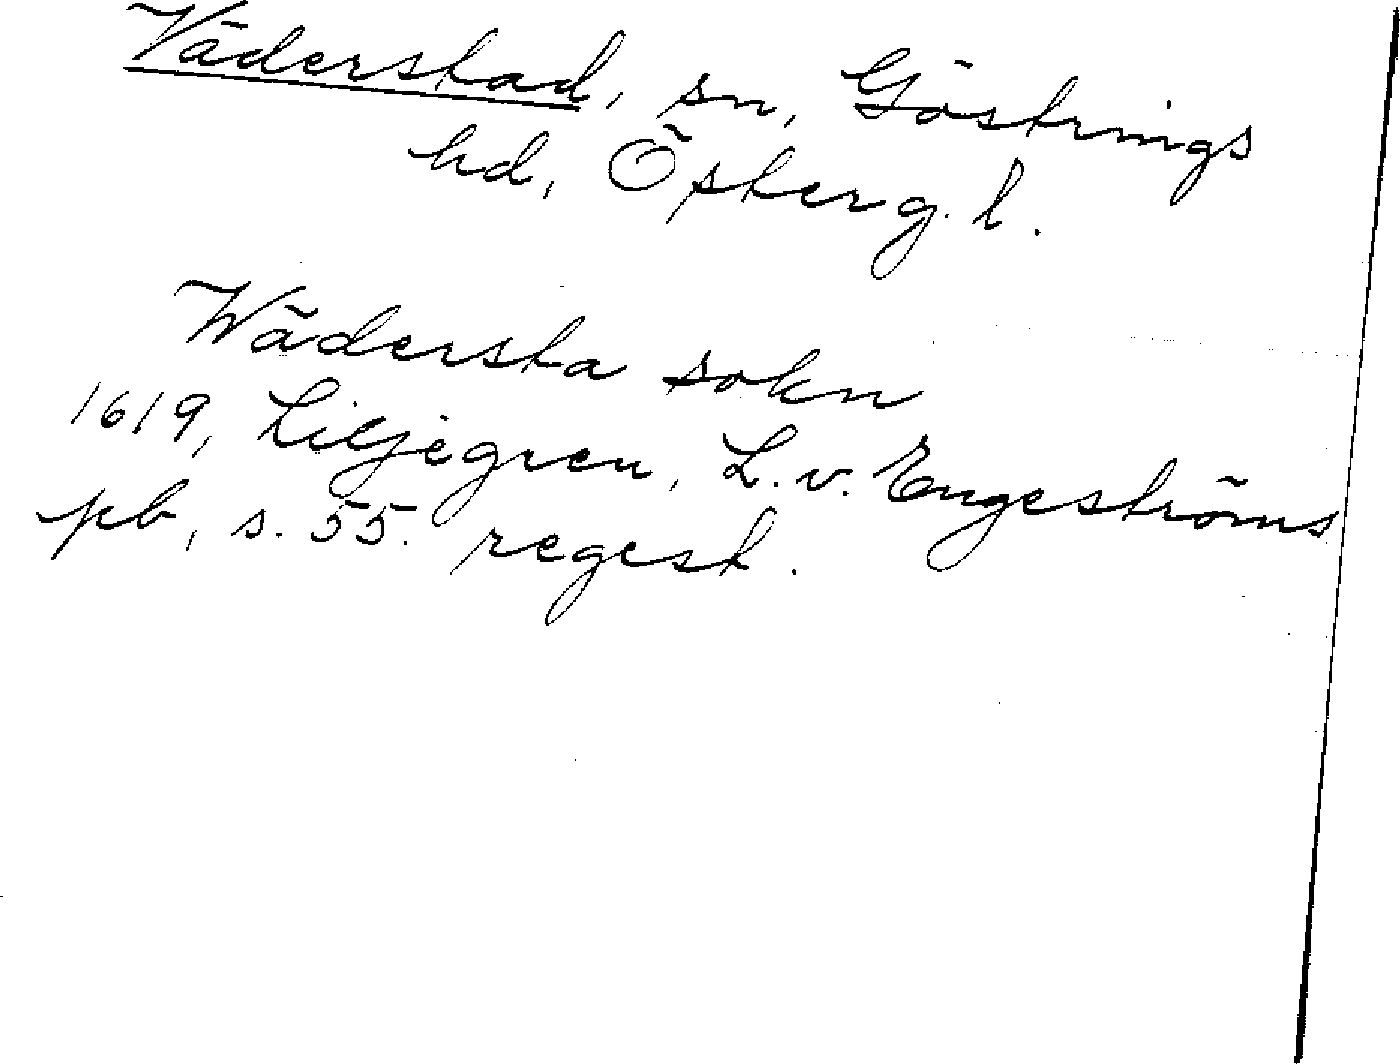 Väderstad, sn, Göstrings
hd, Österg. l.
Wädersta sokn
1619, Liljegren, L. v. Engeströms
pb, s. 55. regest.